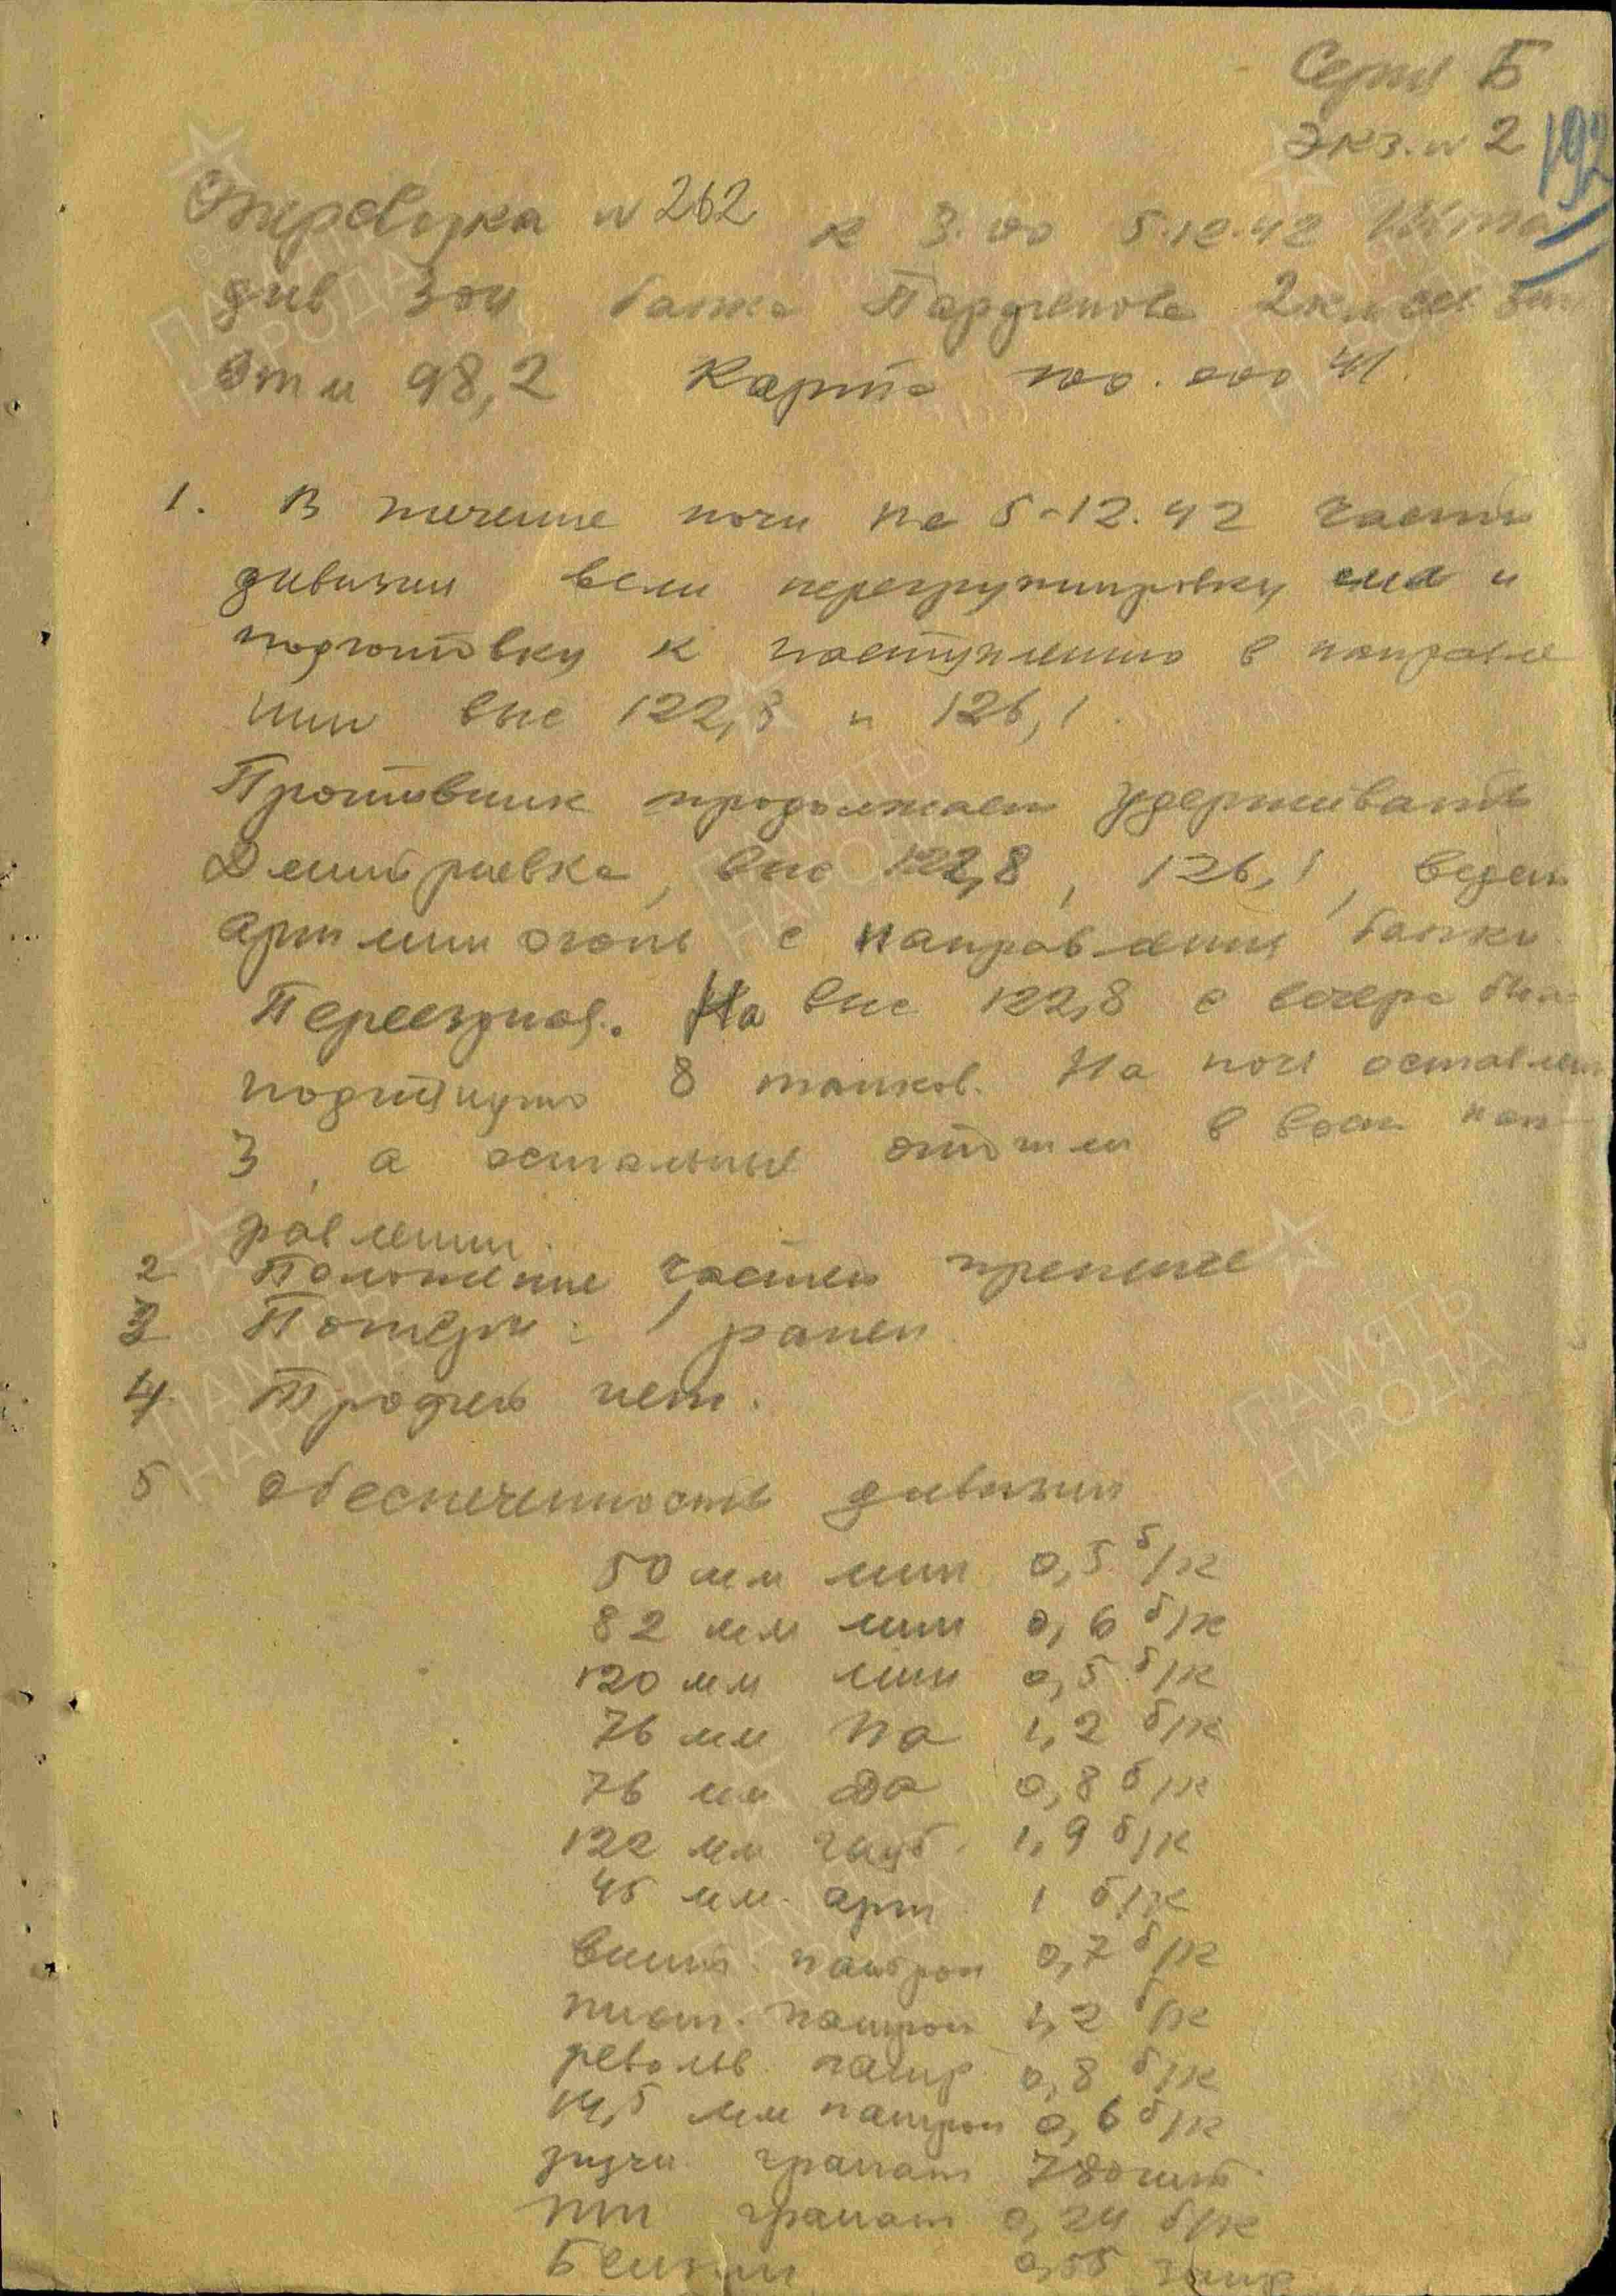 Серия Б
Экз. N 2
192
Оперсводка N 262 к 3.00 5.12.42 Шта
див 304 балка Парфенова 2 км сев зап
Отм 98,2 Карта 100.000 41.
1. В течение ночи на 5-12.42 части
дивизии вели перегруппировку сил и
подготовку к наступлению в направле
нии выс 122,8 и 126,1.
Противник продолжает удерживать
Дмитриевка, выс 122,8, 126,1, ведет
арт мин огонь с направления балки
Переездная. На выс 122,8 с вечера было
подтянуто 8 танков. На ночь оставлен
3, а остальные отошли в вост нап-
равлении.
2 Положение частей прежнее
3 Потери: 1 ранен
4. Трофеев нет.
5 Обеспеченность дивизии
50 мм мин 0,5 б/к
82 мм мин 0,6 б/к
120 мм мин 0,5 б/к
76 мм ПА 1,2 б/к
76 мм ДА 0,8 б/к
122 мм гауб. 1,9 б/к
45 мм. арт 1 б/к
винт патрон 0,7 б/к
пист. патрон 1,2 б/к
револьв. патр 0,8 б/к
14,5 мм патрон 0,6 б/к
ручн. гранат 780 шт.
ПТ гранат 0,24 б/к
Бензин 0,55 запр
ПАМЯТЬ
НАРОДА